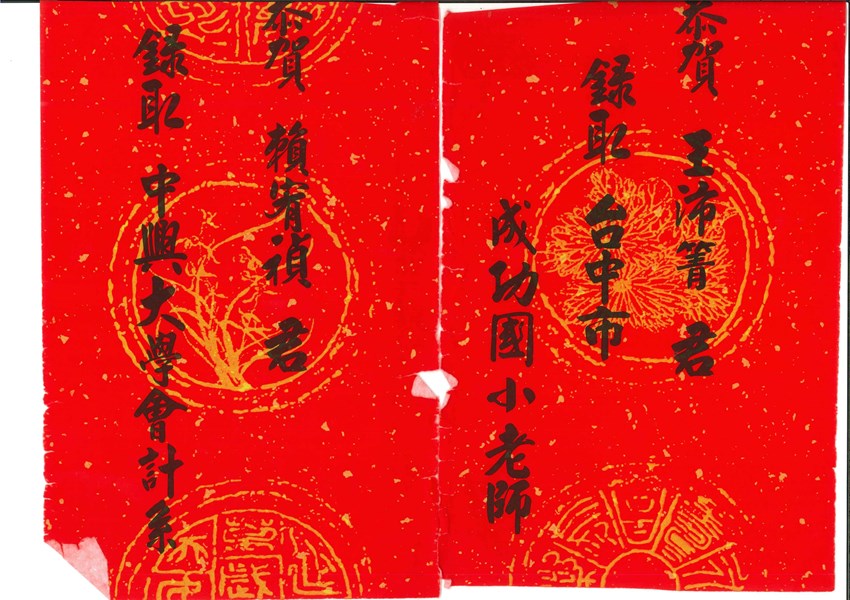 恭賀 王沛箐 君
錄取 台中市
成功國小老師
恭賀 賴宥禎 君
錄取 中興大學會計系